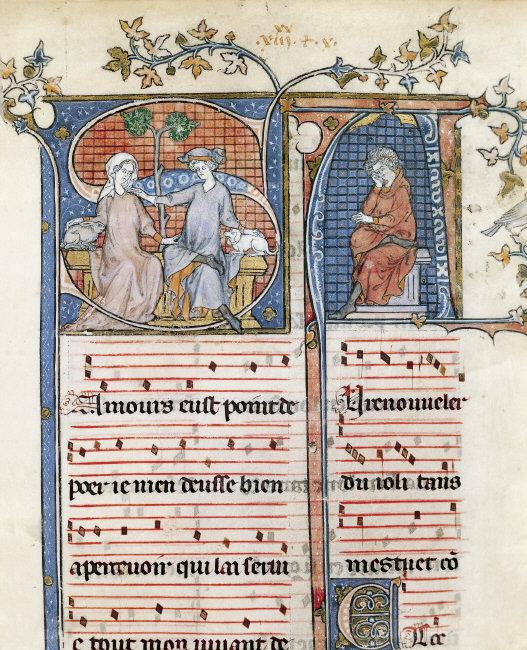 SAmours eust point de
poer ie men deusse bien
aperceuoir qui lai serui
e tout mon uiuant de
AU renouueler
du ioli tans
mestuet cō
Ecce